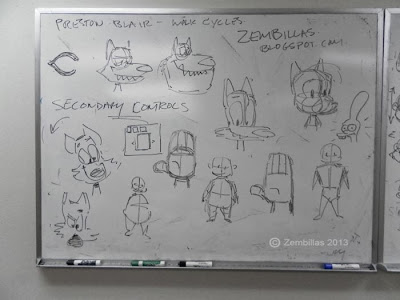 PRESTON BLAIR - WALK CYCLES
ZEMBILLAS
BLOGSPOT.COM
SECONDARY CONTROLS
© Zembillas 2013